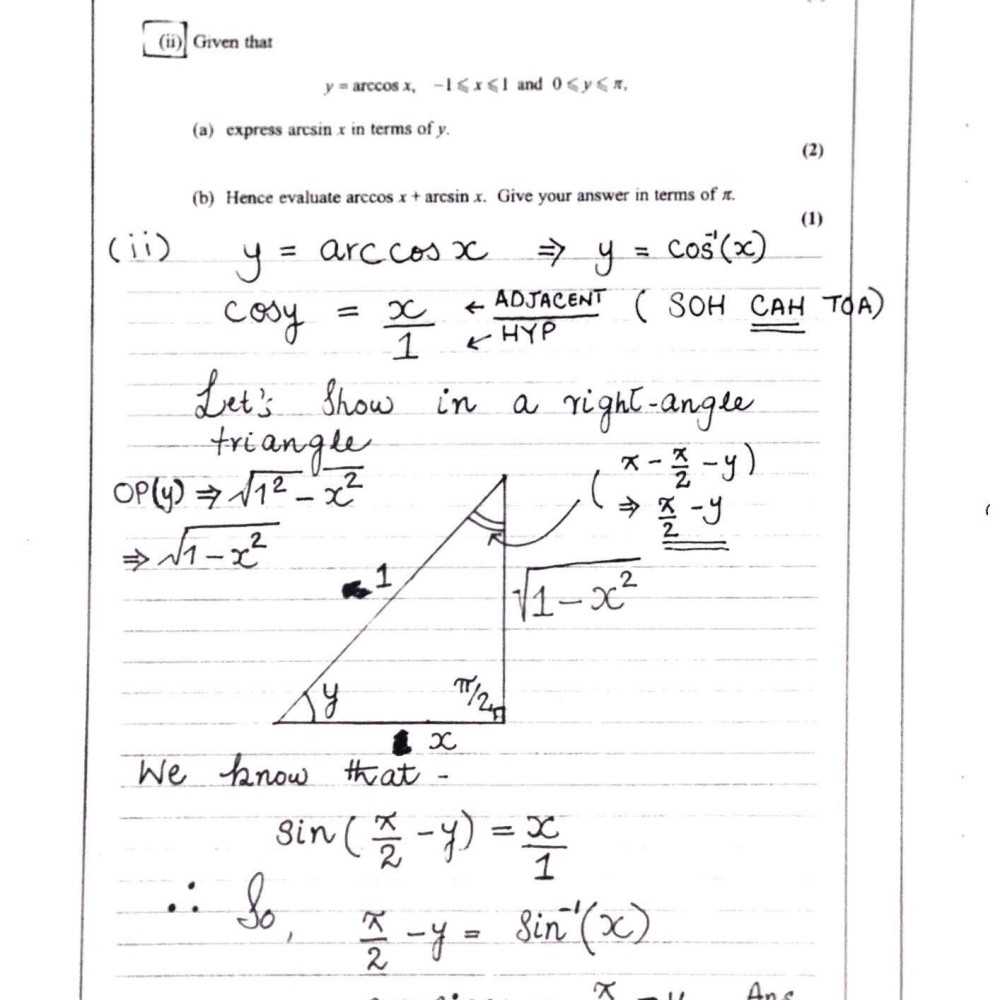 (ii) Given that
y = arccos x, −1 ⩽ x ⩽ 1 and 0 ⩽ y ⩽ π,
(a) express arcsin x in terms of y.
(2)
(b) Hence evaluate arccos x + arcsin x. Give your answer in terms of π.
(1)
(ii) y = arccos x ⇒ y = cos⁻¹(x)
cosy = x/1 ← ADJACENT / ← HYP ( SOH CAH TOA)
Let's Show in a right-angle
triangle
OP(y) ⇒ √1² − x²
⇒ √1 − x²
( π − π/2 − y)
⇒ π/2 − y
1
√1 − x²
y
π/2
x
We know that -
sin( π/2 − y) = x/1
∴ So, π/2 − y = Sin⁻¹(x)
π/2 − y Ans